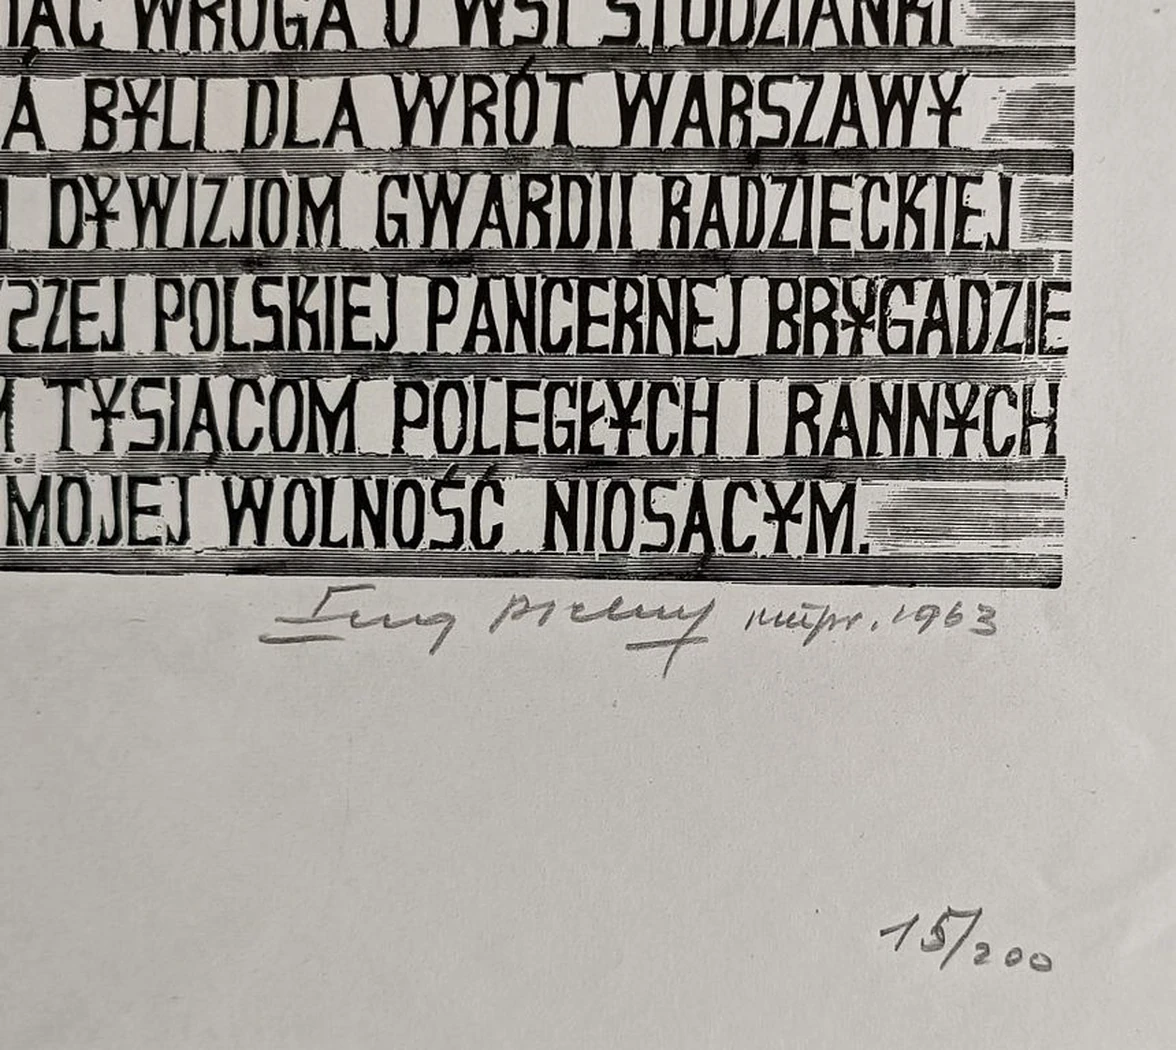 WROGA U WSI STUDZIANKI
BYLI DLA WRÓT WARSZAWY
DYWIZJOM GWARDII RADZIECKIEJ
SZEJ POLSKIEJ PANCERNEJ BRYGADZIE
TYSIĄCOM POLEGŁYCH I RANNYCH
MOJEJ WOLNOŚĆ NIOSĄCYM.
1963
15/200